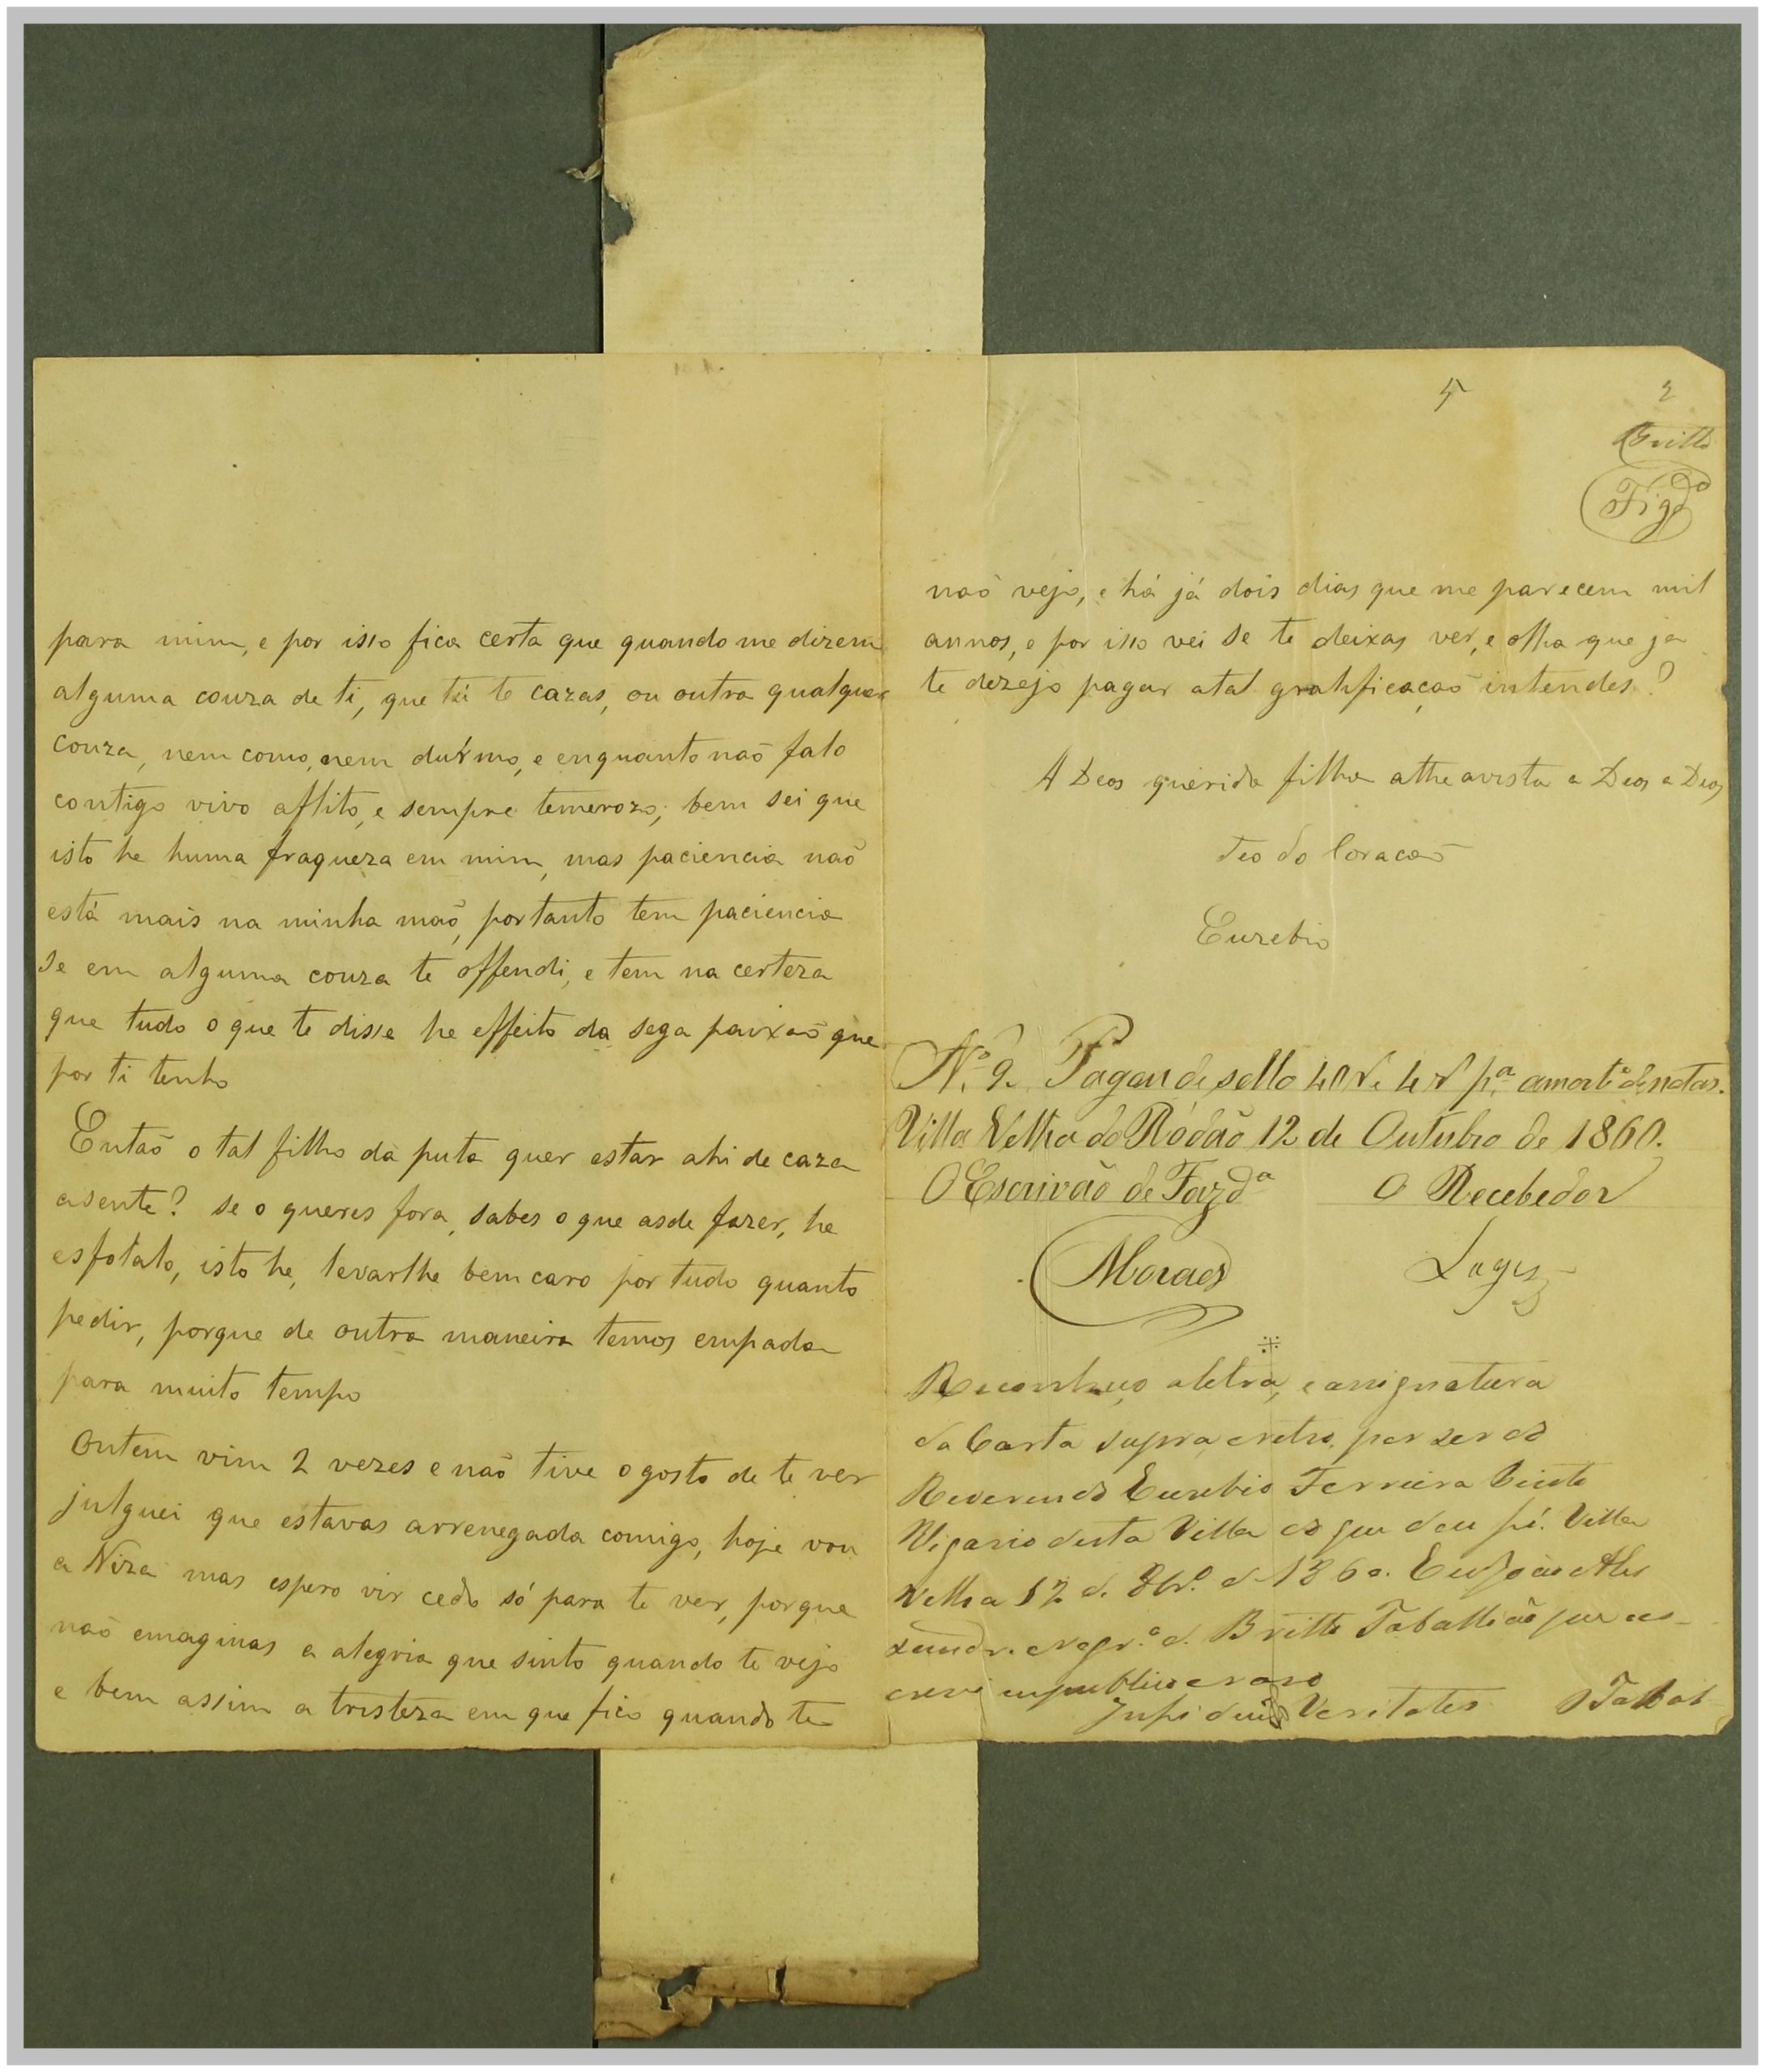 para mim, e por isso fica certa que quando me dizem
alguma couza de ti, que tú te cazas, ou outra qualquer
couza, nem como, nem durmo, e enquanto naõ falo
contigo vivo aflito, e sempre temerozo; bem sei que
isto he huma fraqueza em mim, mas paciencia naõ
está mais na minha maõ, portanto tem paciencia
se em alguma couza te offendi, e tem na certeza
que tudo o que te disse he effeito da sega paixaõ que
por ti tenho
Entaõ o tal filho da puta quer estar ahi de caza
asente? se o queres fora, sabes o que asde fazer, he
esfolalo, isto he, levarlhe bem caro por tudo quanto
pedir, porque de outra maneira temos empada
para muito tempo
Ontem vim 2 vezes e naõ tive o gosto de te ver
julguei que estavas arrenegada comigo, hoje vou
a Niza mas espero vir cedo só para te ver, porque
naõ emaginas a alegria que sinto quando te vejo
e bem assim a tristeza em que fico quando te
2
Britto
Figdo
naõ vejo, e há já dois dias que me parecem mil
annos, e por isso vei se te deixas ver, e olha que ja
te dezejo pagar atal gratificaçaõ intendes?
A Deos querida filha athe avista a Deos a Deos
Teo do Coracaõ
Euzebio
N.º 9. Pagou de sello 40 r. e 4 r. p.ª amort.º de notas.
Villa Velha do Ródão 12 de Outubro de 1860.
O Escrivão de Fazd.ª O Recebedor
Moraes
Reconheço aletra, e assignatura
da Carta supra eretro, por ser do
Reverendo Euzebio Ferreira
Vigario desta Villa do que dou fé. Villa
Velha 12 d. 8br.º d. 1860. Eu João Ale
xandr. d. Britto Taballião que es-
crevi em publico e raso
Veritates